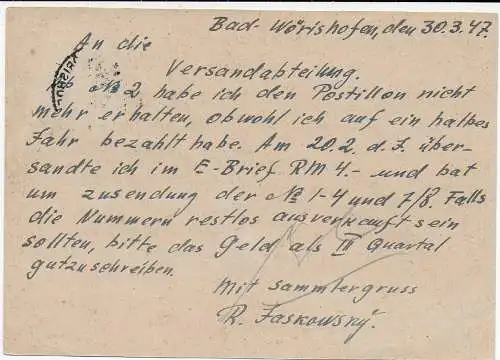 Bad-Wörishofen, den 30.3.47.
An die
Versandabteilung.
№ 2 habe ich den Postillon nicht
mehr erhalten, obwohl ich auf ein halbes
Jahr bezahlt habe. Am 20.2. d.J. über-
sandte ich im E-Brief RM 4.- und bat
um zusendung der № 1-4 und 7/8. Falls
die Nummern restlos ausverkauft sein
sollten, bitte das Geld als III Quartal
gutzuschreiben.
Mit Sammlergruss
R. Jaskowsky.